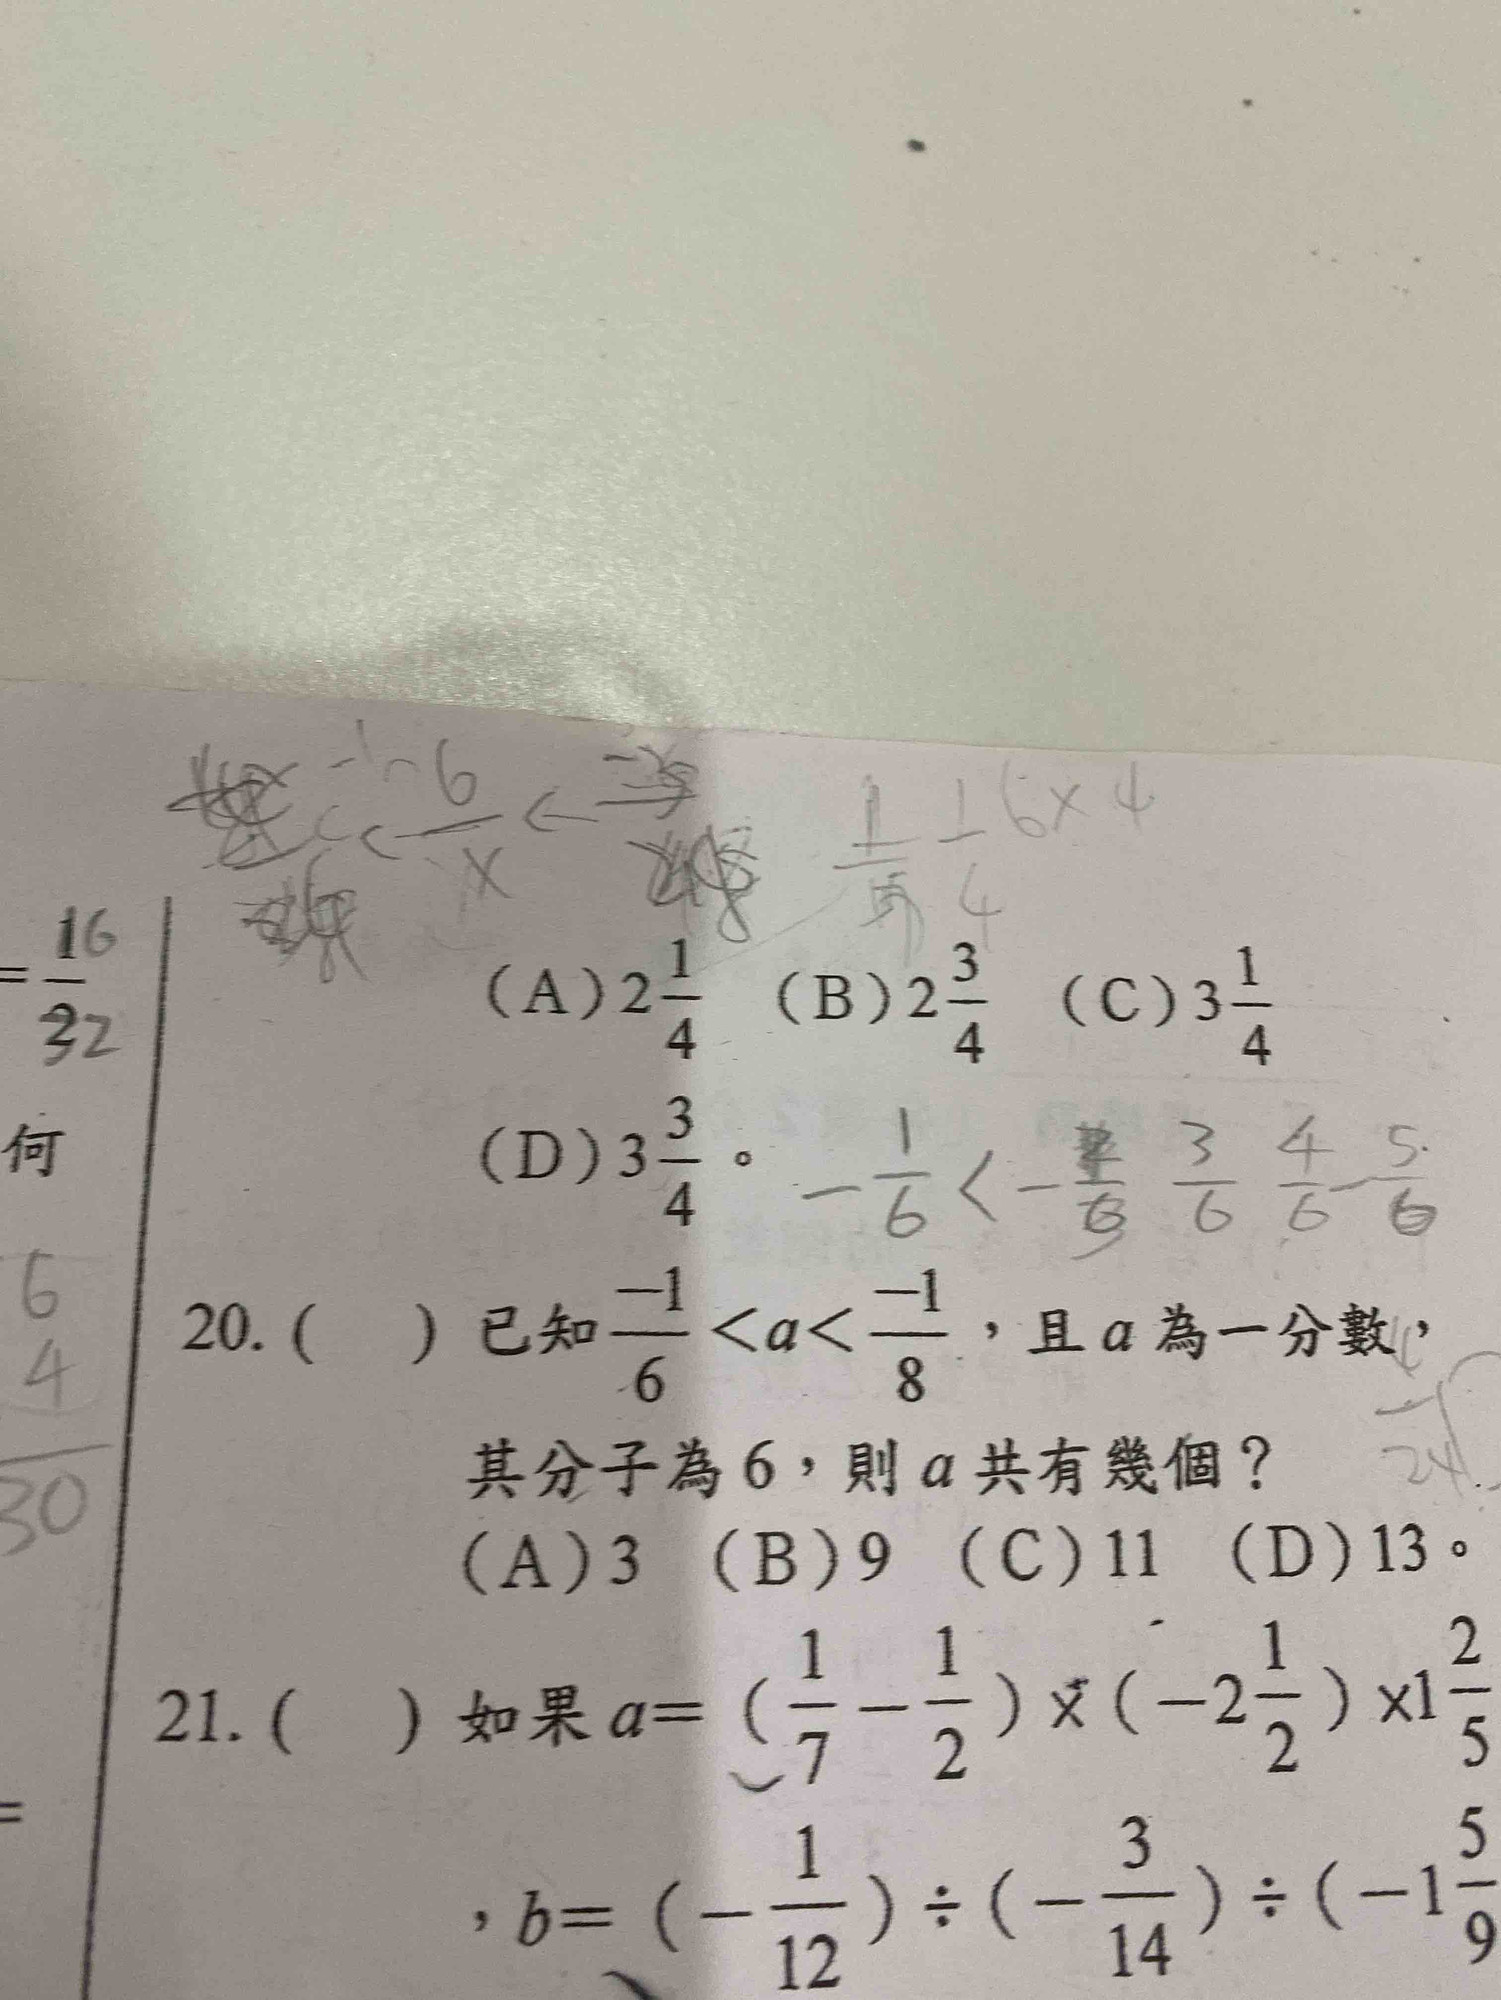 -1 -6
< — <
x
1/5 1/4 6×4
= 16/32
(A) 2 1/4 (B) 2 3/4 (C) 3 1/4
何
(D) 3 3/4 。
- 1/6 < - 3/6 4/6 - 5/6
20. ( ) 已知 -1/6 < a < -1/8 ,且 a 為一分數,
其分子為 6,則 a 共有幾個?
6
4
30
24
(A) 3 (B) 9 (C) 11 (D) 13。
21. ( ) 如果 a= (1/7 - 1/2) × (-2 1/2) ×1 2/5
=
,b= (- 1/12) ÷ (- 3/14) ÷ (-1 5/9